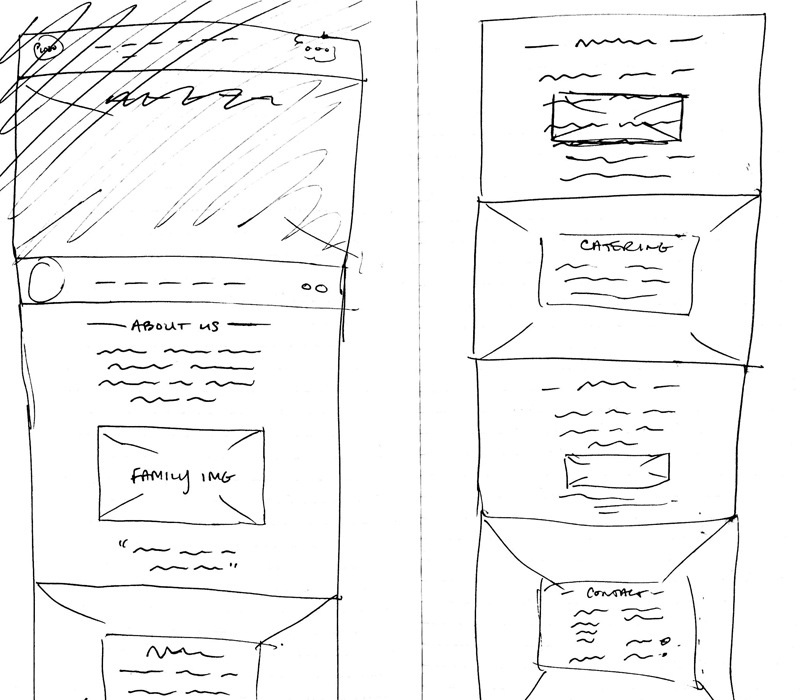 ABOUT US
FAMILY IMG
CATERING
CONTACT